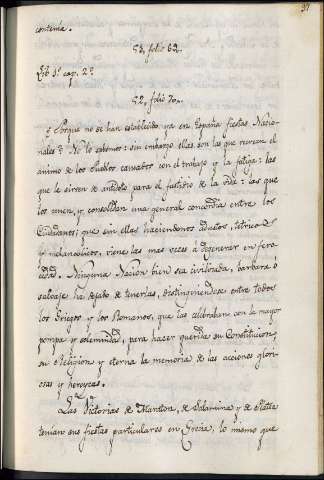 37
contenia.
51, folio 62.
Lib 1º cap. 2º
52, folio 70.
¿Porque no se han establecido ya en España fiestas Nacio-
nales? No lo sabemos: sin embargo ellas son las que recrean el
animo de los Pueblos cansados con el trabajo y la fatiga: las
que le sirven de antidoto para el fastidio de la vida: las que
los unen, y consolidan una general concordia entre los
Ciudadanos; que sin ellas haciendonos adustos, tétricos
y melancolicos, viene las mas veces a degenerar en fero-
cidad. Ninguna Nacion bien sea civilizada, barbara ó
salvaje ha dejado de tenerlas, distinguiendose entre todos
los Griegos y los Romanos, que las celebraban con la mayor
pompa y solemnidad, para hacer querida su Constitucion,
su Religion y eterna la memoria de las acciones glori-
osas y heroycas.
Las Victorias de Maraton, de Salamina y de Platea
tenian sus fiestas particulares en Grecia, lo mismo que